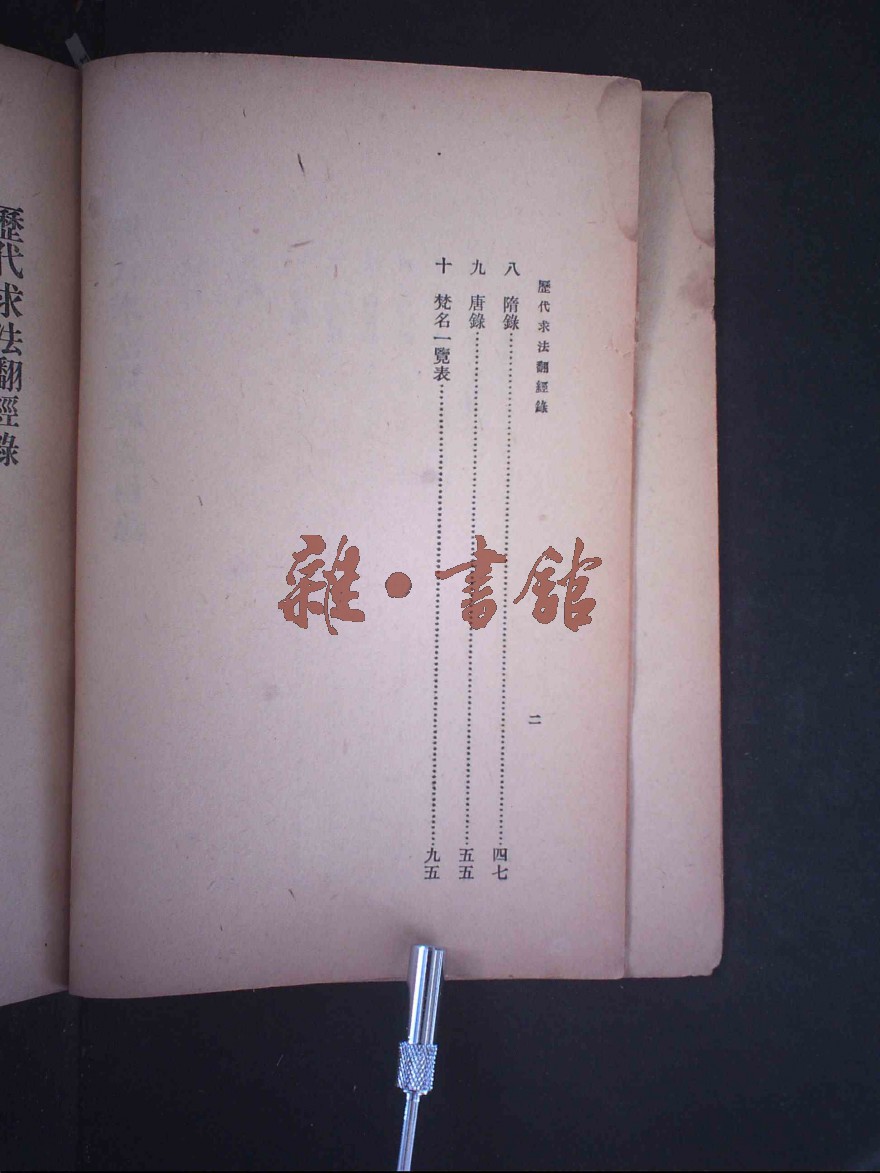 歷代求法翻經錄
二
八 隋錄……四七
九 唐錄……五五
十 梵名一覽表……九五
雜·書館
歷代求法翻經錄